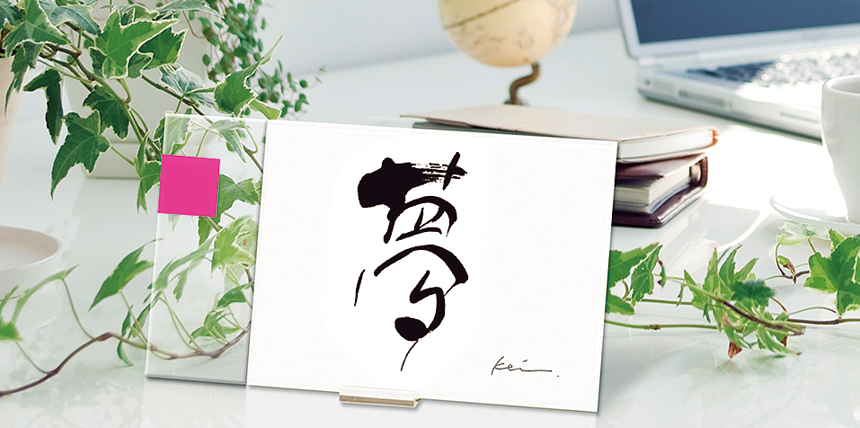 夢
Kei